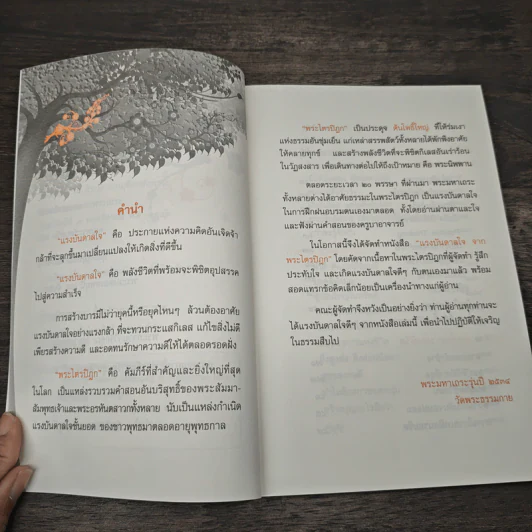 คำนำ
"แรงบันดาลใจ" คือ ประกายแห่งความคิดอันเจิดจ้า
กล้าที่จะลุกขึ้นมาเปลี่ยนแปลงให้เกิดสิ่งที่ดีขึ้น
"แรงบันดาลใจ" คือ พลังชีวิตที่พร้อมจะพิชิตอุปสรรค
ไปสู่ความสำเร็จ
การสร้างบารมีไม่ว่ายุคไหนหรือยุคไหนๆ ล้วนต้องอาศัย
แรงบันดาลใจอย่างแรงกล้า ที่จะทวนกระแสกิเลส แก้ไขสิ่งไม่ดี
เพียรสร้างความดี และอดทนรักษาความดีให้ได้ตลอดรอดฝั่ง
"พระไตรปิฎก" คือ คัมภีร์ที่สำคัญและยิ่งใหญ่ที่สุด
ในโลก เป็นแหล่งรวบรวมคำสอนอันบริสุทธิ์ของพระสัมมา-
สัมพุทธเจ้าและพระอรหันตสาวกทั้งหลาย นับเป็นแหล่งกำเนิด
แรงบันดาลใจชั้นยอด ของชาวพุทธมาตลอดอายุพุทธกาล
"พระไตรปิฎก" เป็นประดุจ ต้นโพธิ์ใหญ่ ที่ให้ร่มเงา
แห่งธรรมอันชุ่มเย็น แก่เหล่าสรรพสัตว์ทั้งหลายได้พักพิงอาศัย
ให้คลายทุกข์ และสร้างพลังชีวิตที่จะพิชิตกิเลสอันเร่าร้อน
ในวัฏสงสาร เพื่อเดินทางต่อไปให้ถึงเป้าหมาย คือ พระนิพพาน
ตลอดระยะเวลา ๒๐ พรรษา ที่ผ่านมา พระมหาเถระ
ทั้งหลายต่างได้อาศัยธรรมะในพระไตรปิฎก เป็นแรงบันดาลใจ
ในการฝึกฝนอบรมตนเองมาตลอด ทั้งโดยอ่านผ่านตาและใจ
และฟังผ่านคำสอนของครูบาอาจารย์
ในโอกาสนี้จึงได้จัดทำหนังสือ "แรงบันดาลใจ จาก
พระไตรปิฎก" โดยคัดจากเนื้อหาในพระไตรปิฎกที่ผู้จัดทำ รู้สึก
ประทับใจ และเกิดแรงบันดาลใจดีๆ กับตนเองมาแล้ว พร้อม
สอดแทรกข้อคิดเล็กน้อยเป็นเครื่องนำทางแก่ผู้อ่าน
คณะผู้จัดทำจึงหวังเป็นอย่างยิ่งว่า ท่านผู้อ่านทุกท่านจะ
ได้แรงบันดาลใจดีๆ จากหนังสือเล่มนี้ เพื่อนำไปปฏิบัติให้เจริญ
ในธรรมสืบไป
พระมหาเถระรุ่นปี ๒๕๓๔
วัดพระธรรมกาย